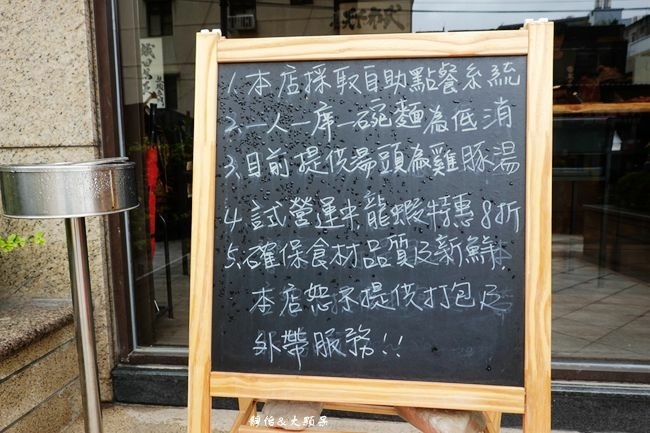 1. 本店採取自助點餐系統
2. 一人一席一碗麵為低消
3. 目前提供湯頭為雞豚湯
4. 試營運中龍蝦特惠8折
5. 確保食材品質及新鮮
本店恕不提供打包及
外帶服務!!
靜怡&大顆呆